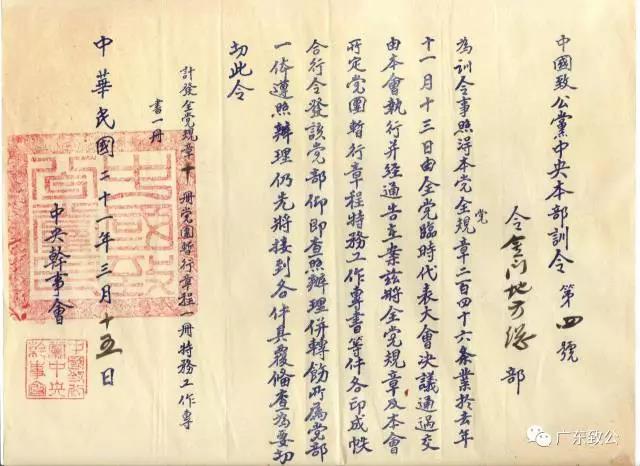 中國致公黨中央本部訓令第四號
令金门地方總部
為訓令事照得本党全党規章二百四十六条業於去年
十一月十三日由全党臨時代表大會决議通過交
由本會執行并經通告在案茲將全党規章及本會
所定党團暫行章程特務工作專書等件各印成帙
合行令發該党部仰即查照辦理併轉飭所属党部
一体遵照辦理仍先將接到各件具覆俻查為要切
切此令
計發全党規章十册党團暫行章程一册特務工作專
書一册
中華民國二十一年三月十五日
中央幹事會
中國致公
黨中央
幹事會
广东致公